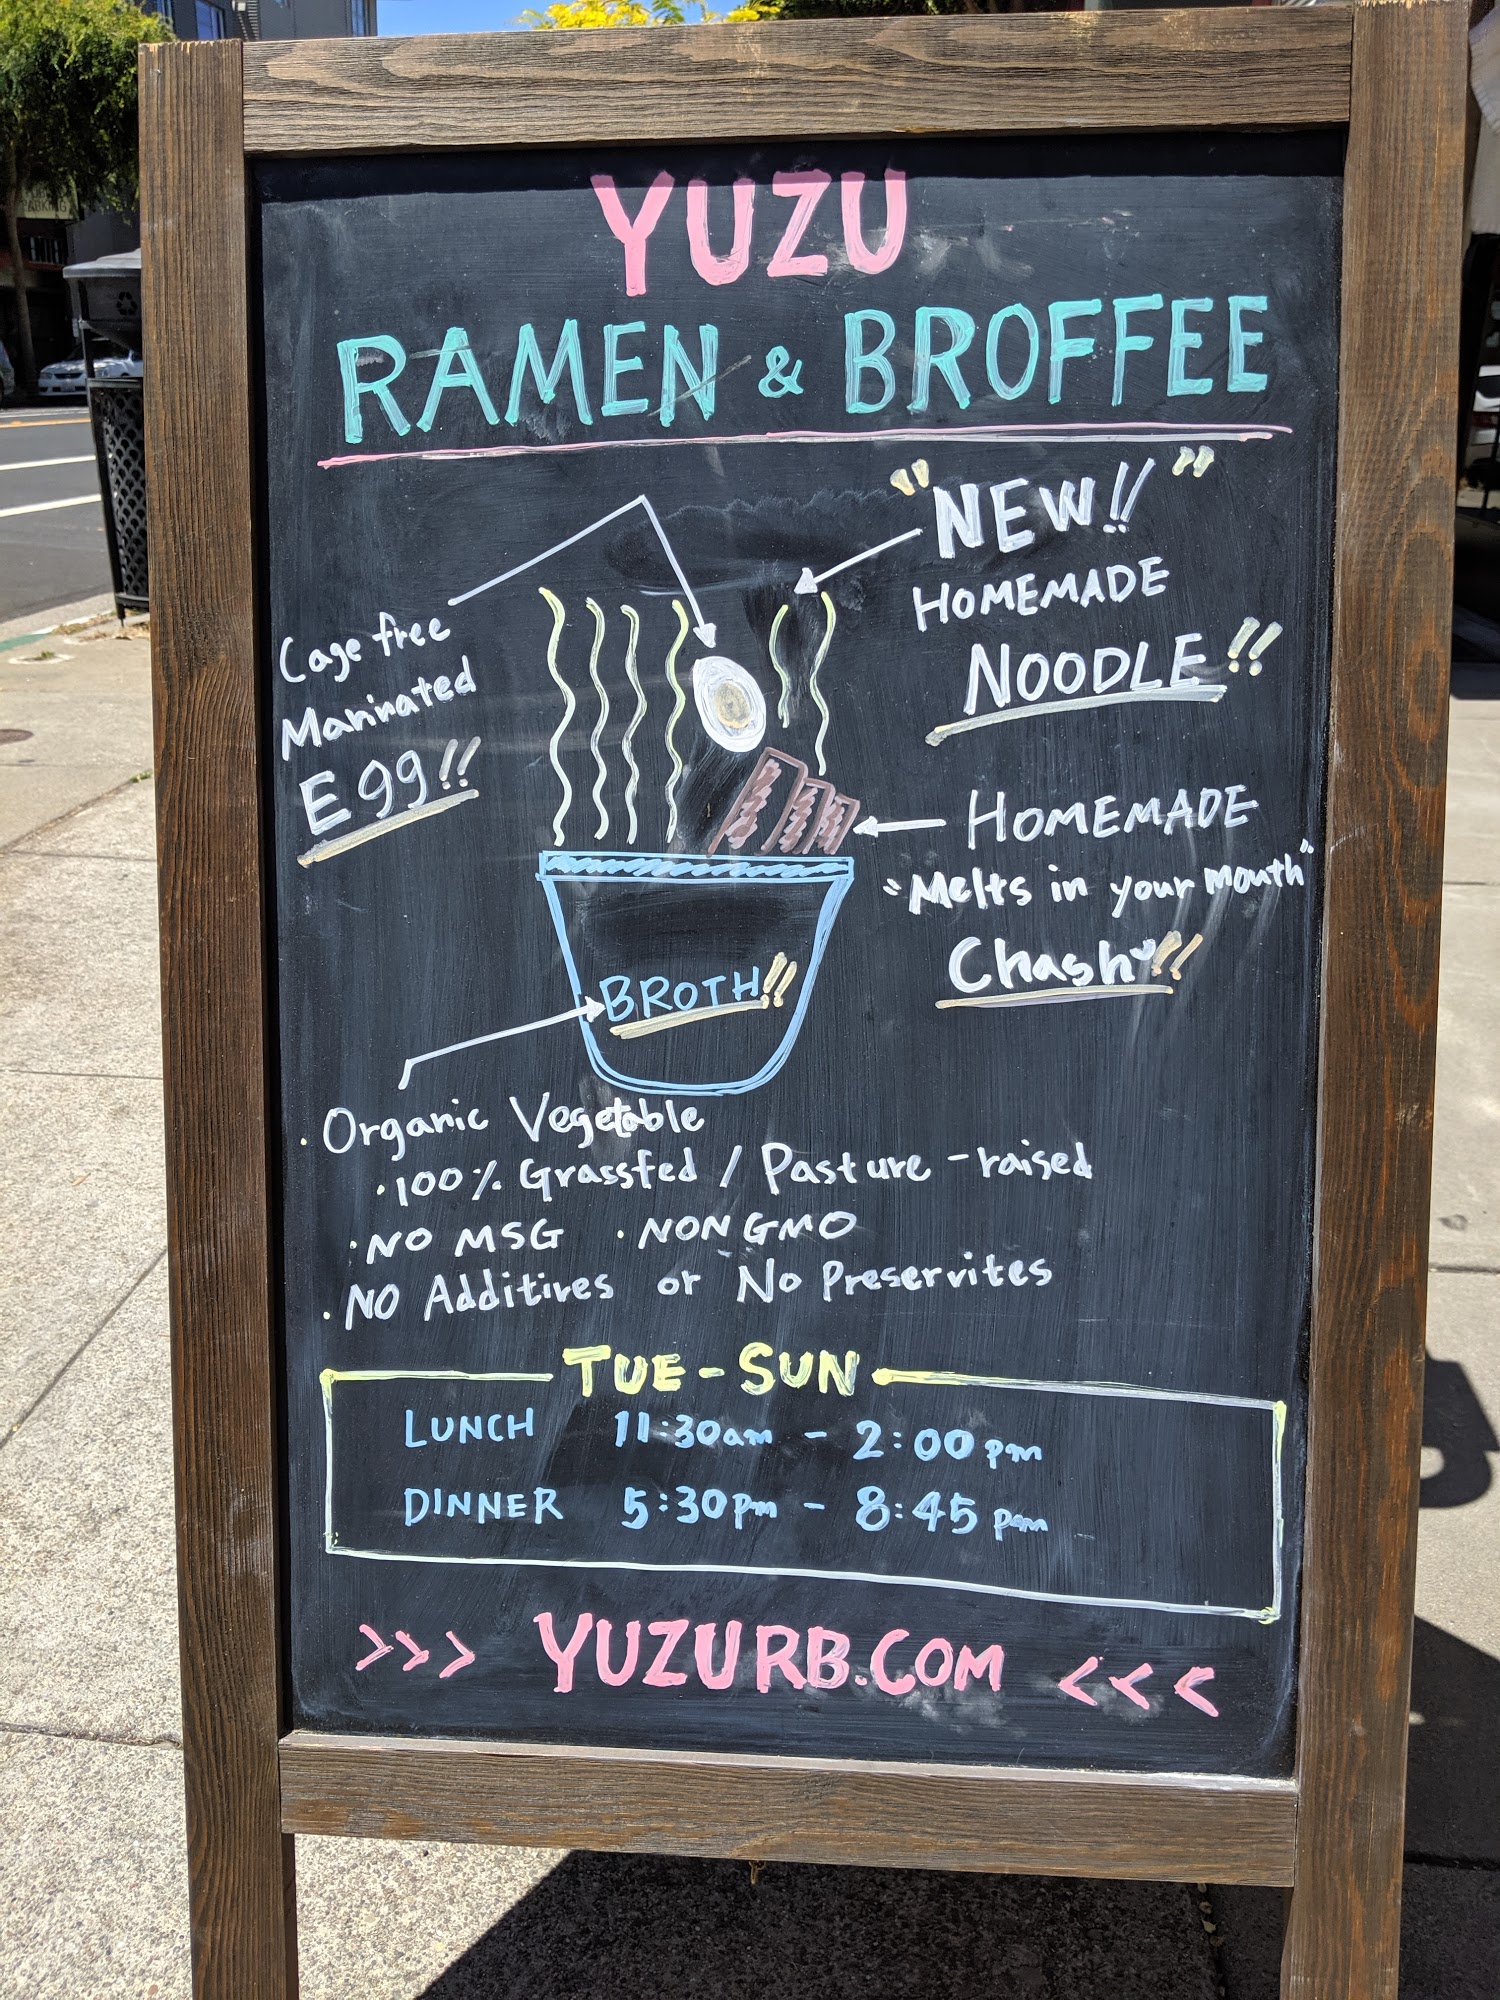 YUZU
RAMEN & BROFFEE
"NEW!!"
HOMEMADE
NOODLE!!
Cage free
Marinated
Egg!!
HOMEMADE
"Melts in your mouth"
Chashu!!
BROTH!!
· Organic Vegetable
· 100% Grassfed / Pasture-raised
· NO MSG · NON GMO
· NO Additives or No Preservites
TUE-SUN
LUNCH 11:30am - 2:00pm
DINNER 5:30pm - 8:45pm
>>> YUZURB.COM <<<